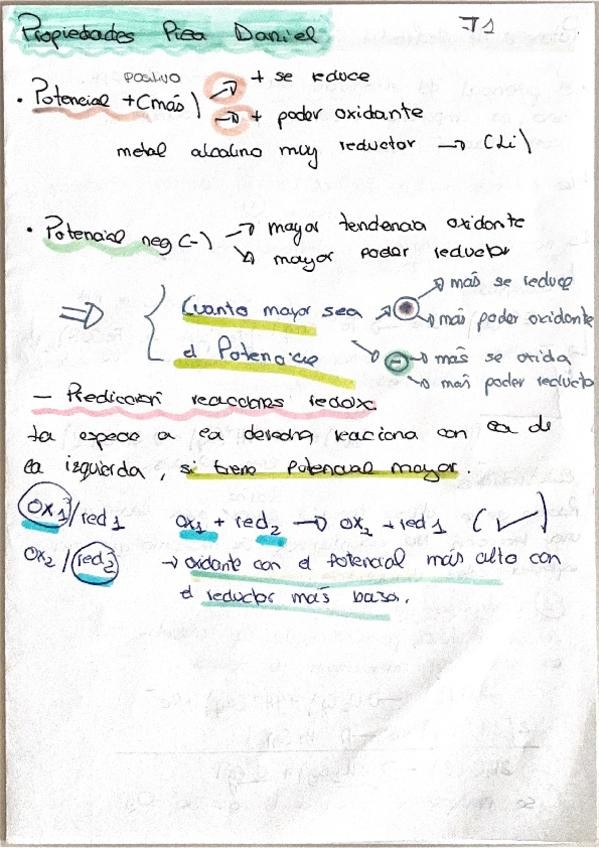 Propiedades Pila Daniel T1
positivo
· Potencial +(más) → + se reduce
→ + poder oxidante
metal alcalino muy reductor → (Li)
· Potencial neg(-) → mayor tendencia oxidante
↘ mayor poder reductor
⇒ { Cuanto mayor sea → + → más se reduce
el Potencial → más poder oxidante
→ - → más se oxida
→ mas poder reducto
- Predicción reacciones redox
la especie a la derecha, reaciona con la de
la izquierda, si tiene potencial mayor.
ox1/red1 ox1 + red2 → ox2 + red1 (✓)
ox2/red2 → oxidante con el potencial más alto con
el reductor más bajo.